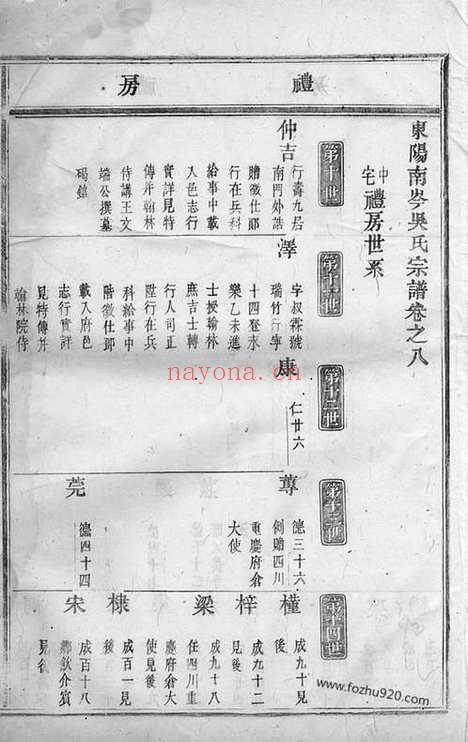 禮房
東陽南岑吳氏宗譜卷之八
中宅禮房世系
第十世
第十一世
第十二世
第十三世
第十四世
仲吉
行壽九居
南門外誥
贈徵仕郎
行在兵科
給事中載
入邑志行
實詳見特
傳并翰林
侍講王文
端公撰墓
碣銘
澤
字叔霖號
瑞竹行寧
十四登永
樂乙未進
士授翰林
庶吉士轉
行人司正
陞行在兵
科給事中
階徵仕郎
載入府邑
志行實詳
見特傳并
翰林院侍
康
仁廿六
蓴
德三十六
例贈四川
重慶府倉
大使
莞
德四十四
槿
成九十見
後
梓
成九十二
見後
梁
成九十八
任四川重
慶府倉大
使見後
棣
成百一見
後
宋
成百十八
鄉飲介賓
見後
nayona.cn
www.fozhu920.com